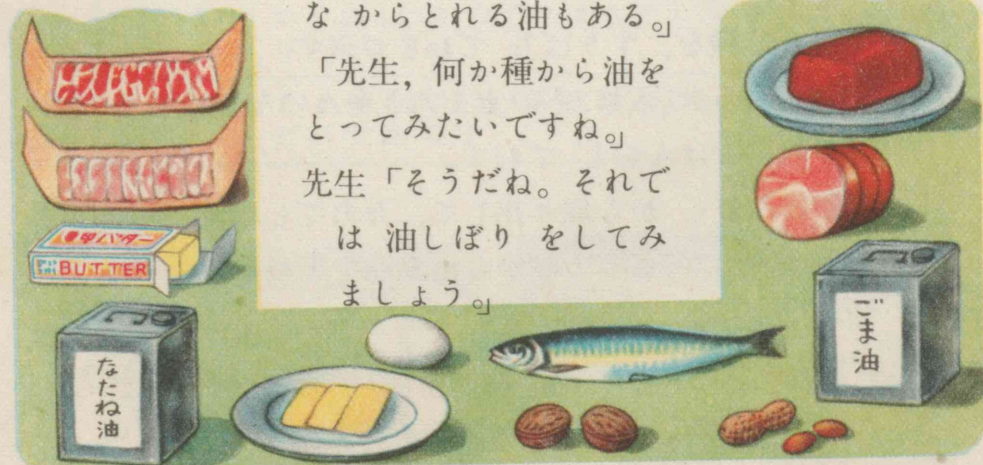 な からとれる油もある。」
「先生，何か種から油を
とってみたいですね。」
先生「そうだね。それで
は 油しぼり をしてみ
ましょう。」
バター
BUTTER
なたね油
ごま油